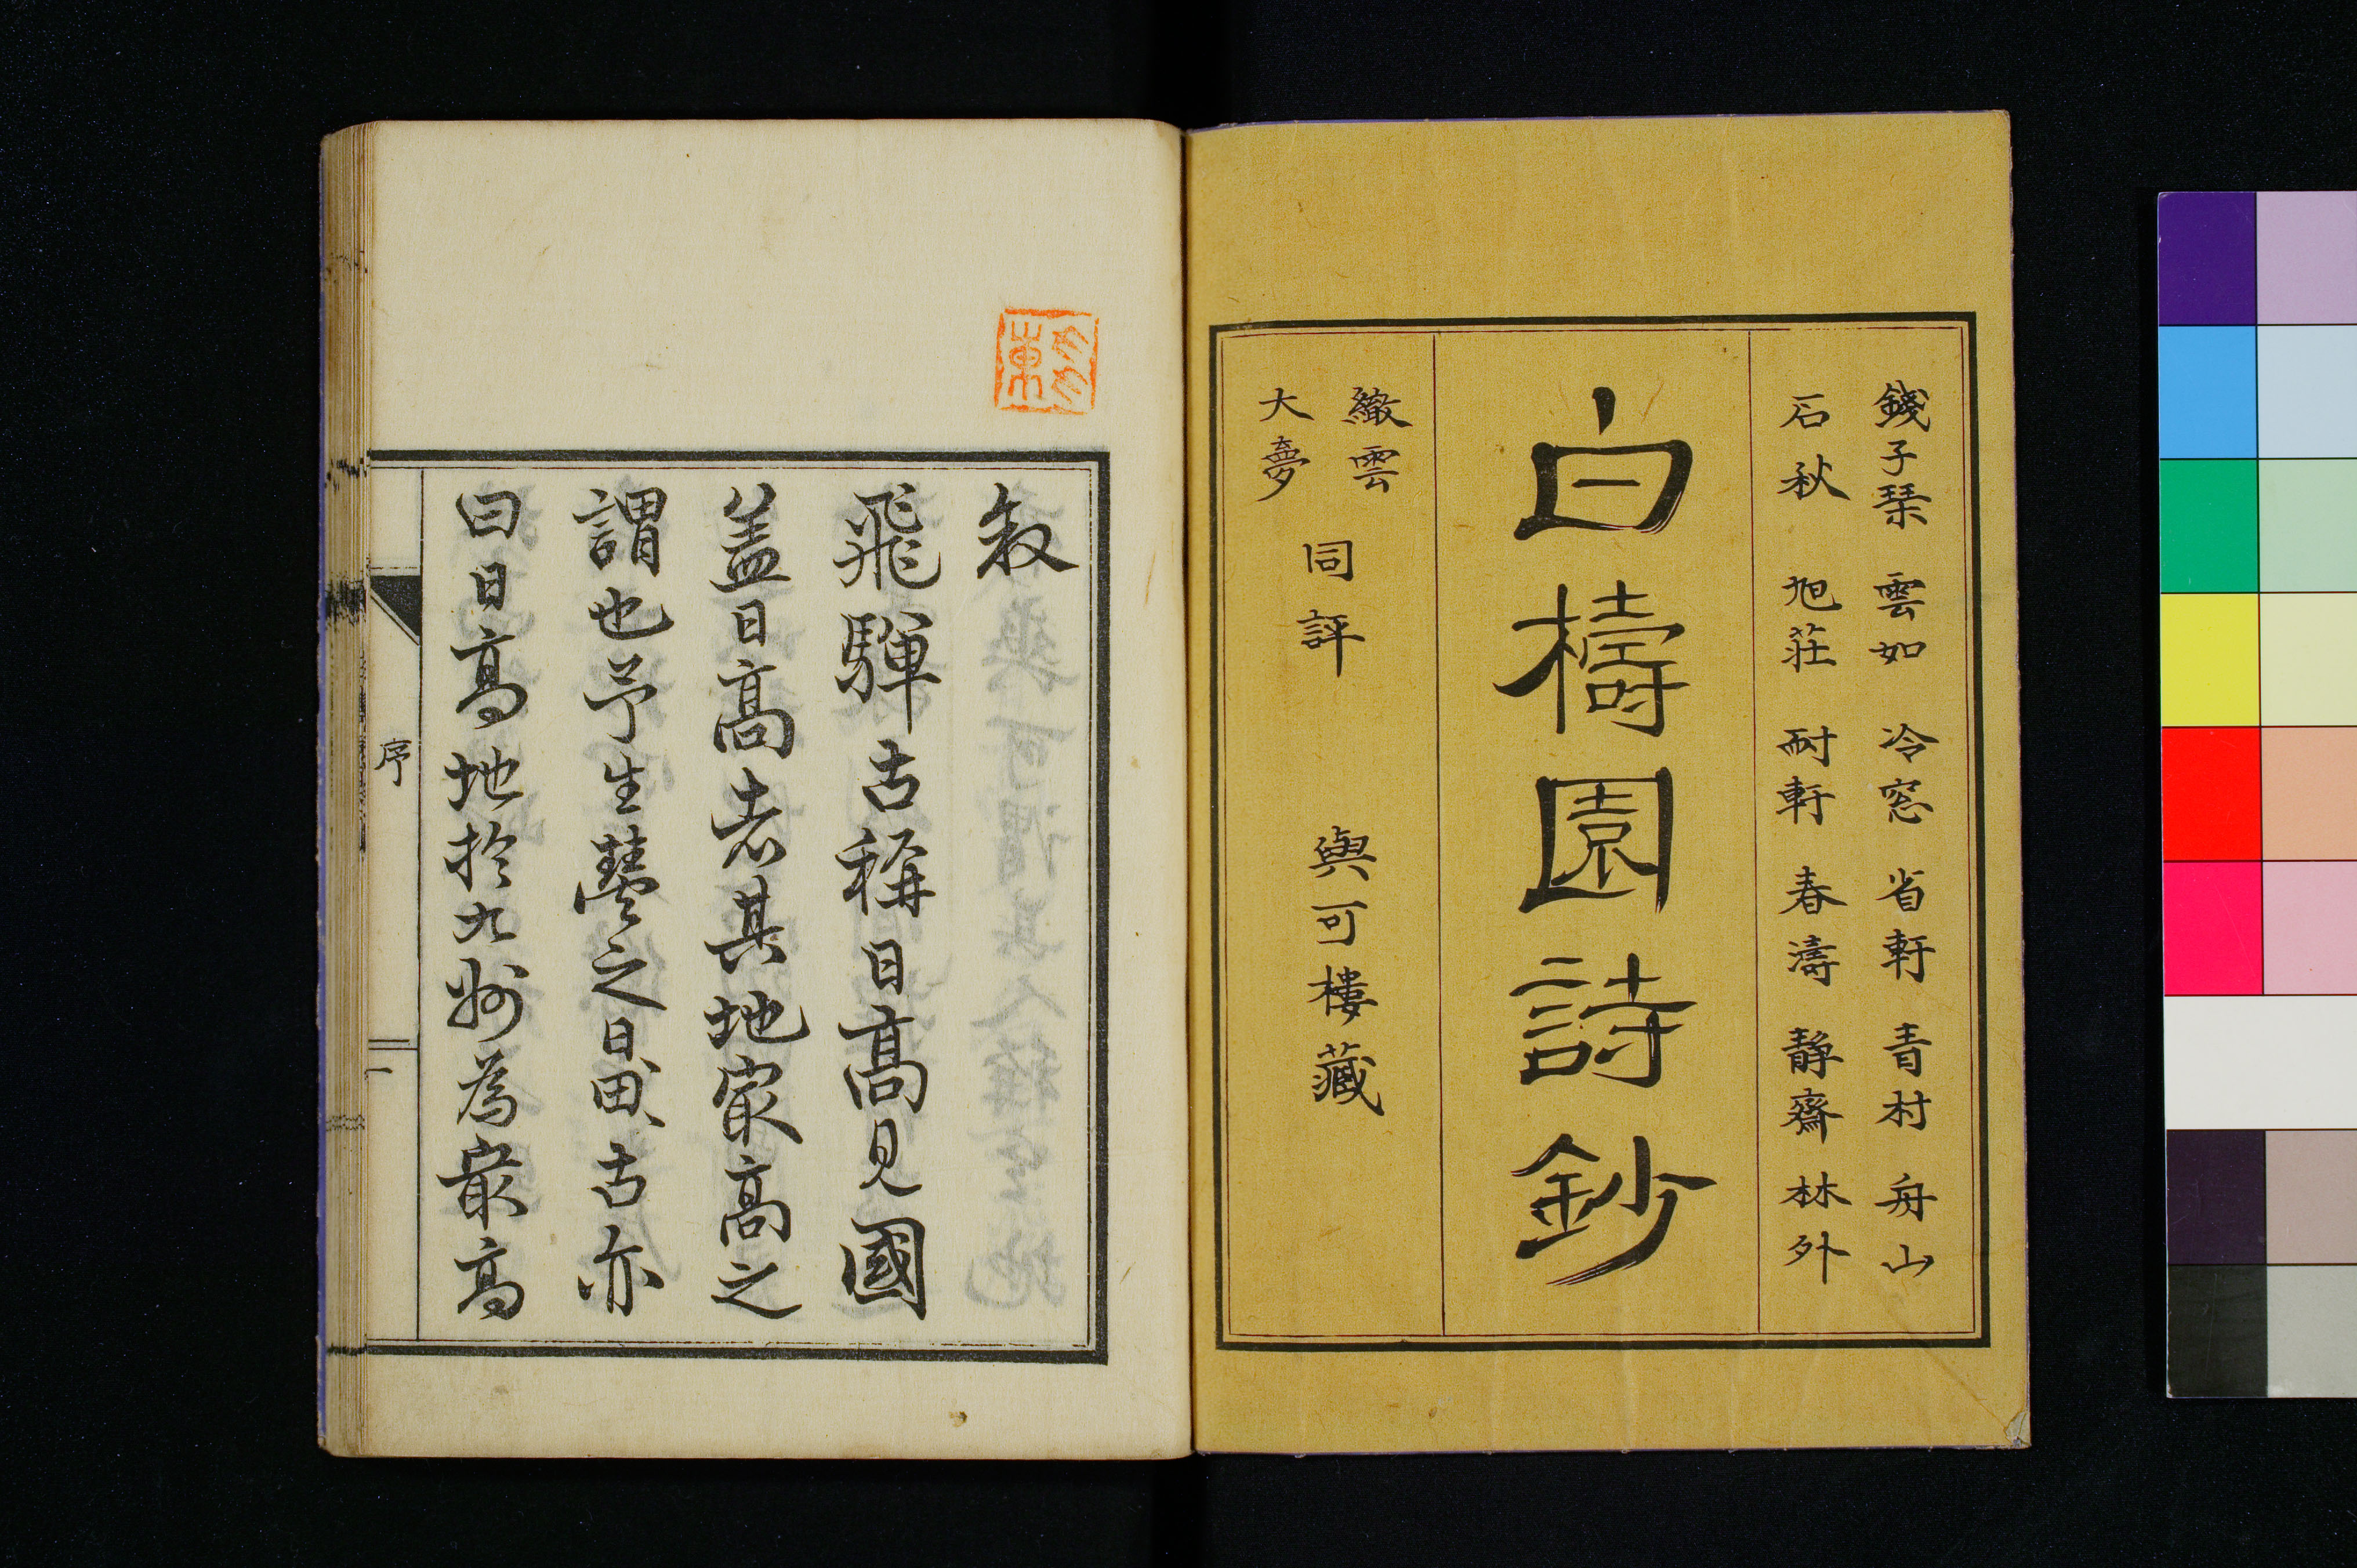 錢子琹 雲如 冷窓 省軒 青村 舟山
石秋 旭荘 耐軒 春濤 静齋 林外
白檮園詩鈔
緻雲
大夢
同評
與可樓藏
敘
飛騨古稱日高見國
盖日高者其地最高之
謂也予生豐之日田古亦
曰日高地於九州為最高
序
一